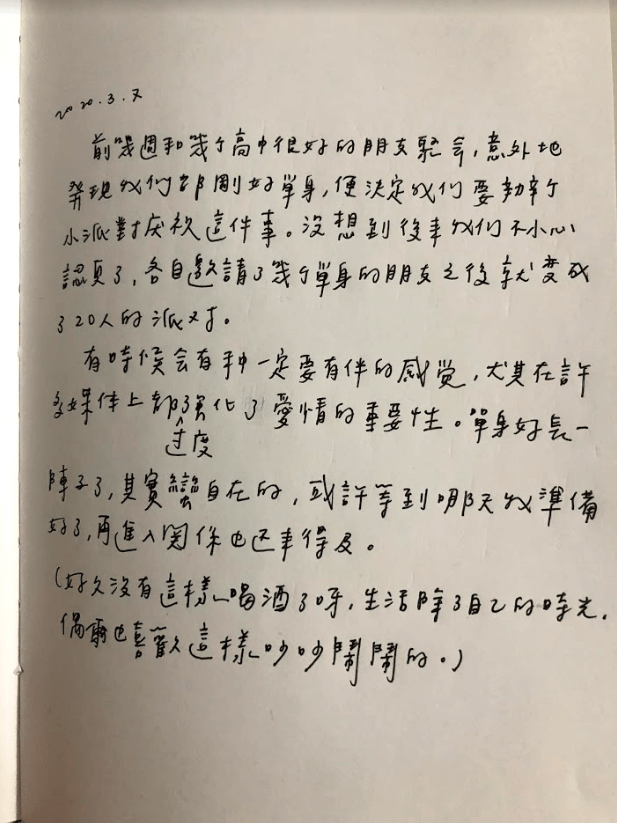 2020.3.7
前幾週和幾个高中很好的朋友聚会,意外地
發現我們都剛好單身,便決定我們要辦个
小派對庆祝這件事。没想到後来我们不小心
認真了,各自邀請了幾个單身的朋友之後就变成
了20人的派对。
有時候会有种一定要有伴的感觉,尤其在許
多媒体上都強化了愛情的重要性。單身好長一
过度
陣子了,其實蠻自在的,或許等到哪天我準備
好了,再進入関係也还来得及。
(好久没有這樣喝酒了呀,生活除了自己的時光,
偶爾也喜歡這樣吵吵鬧鬧的。)